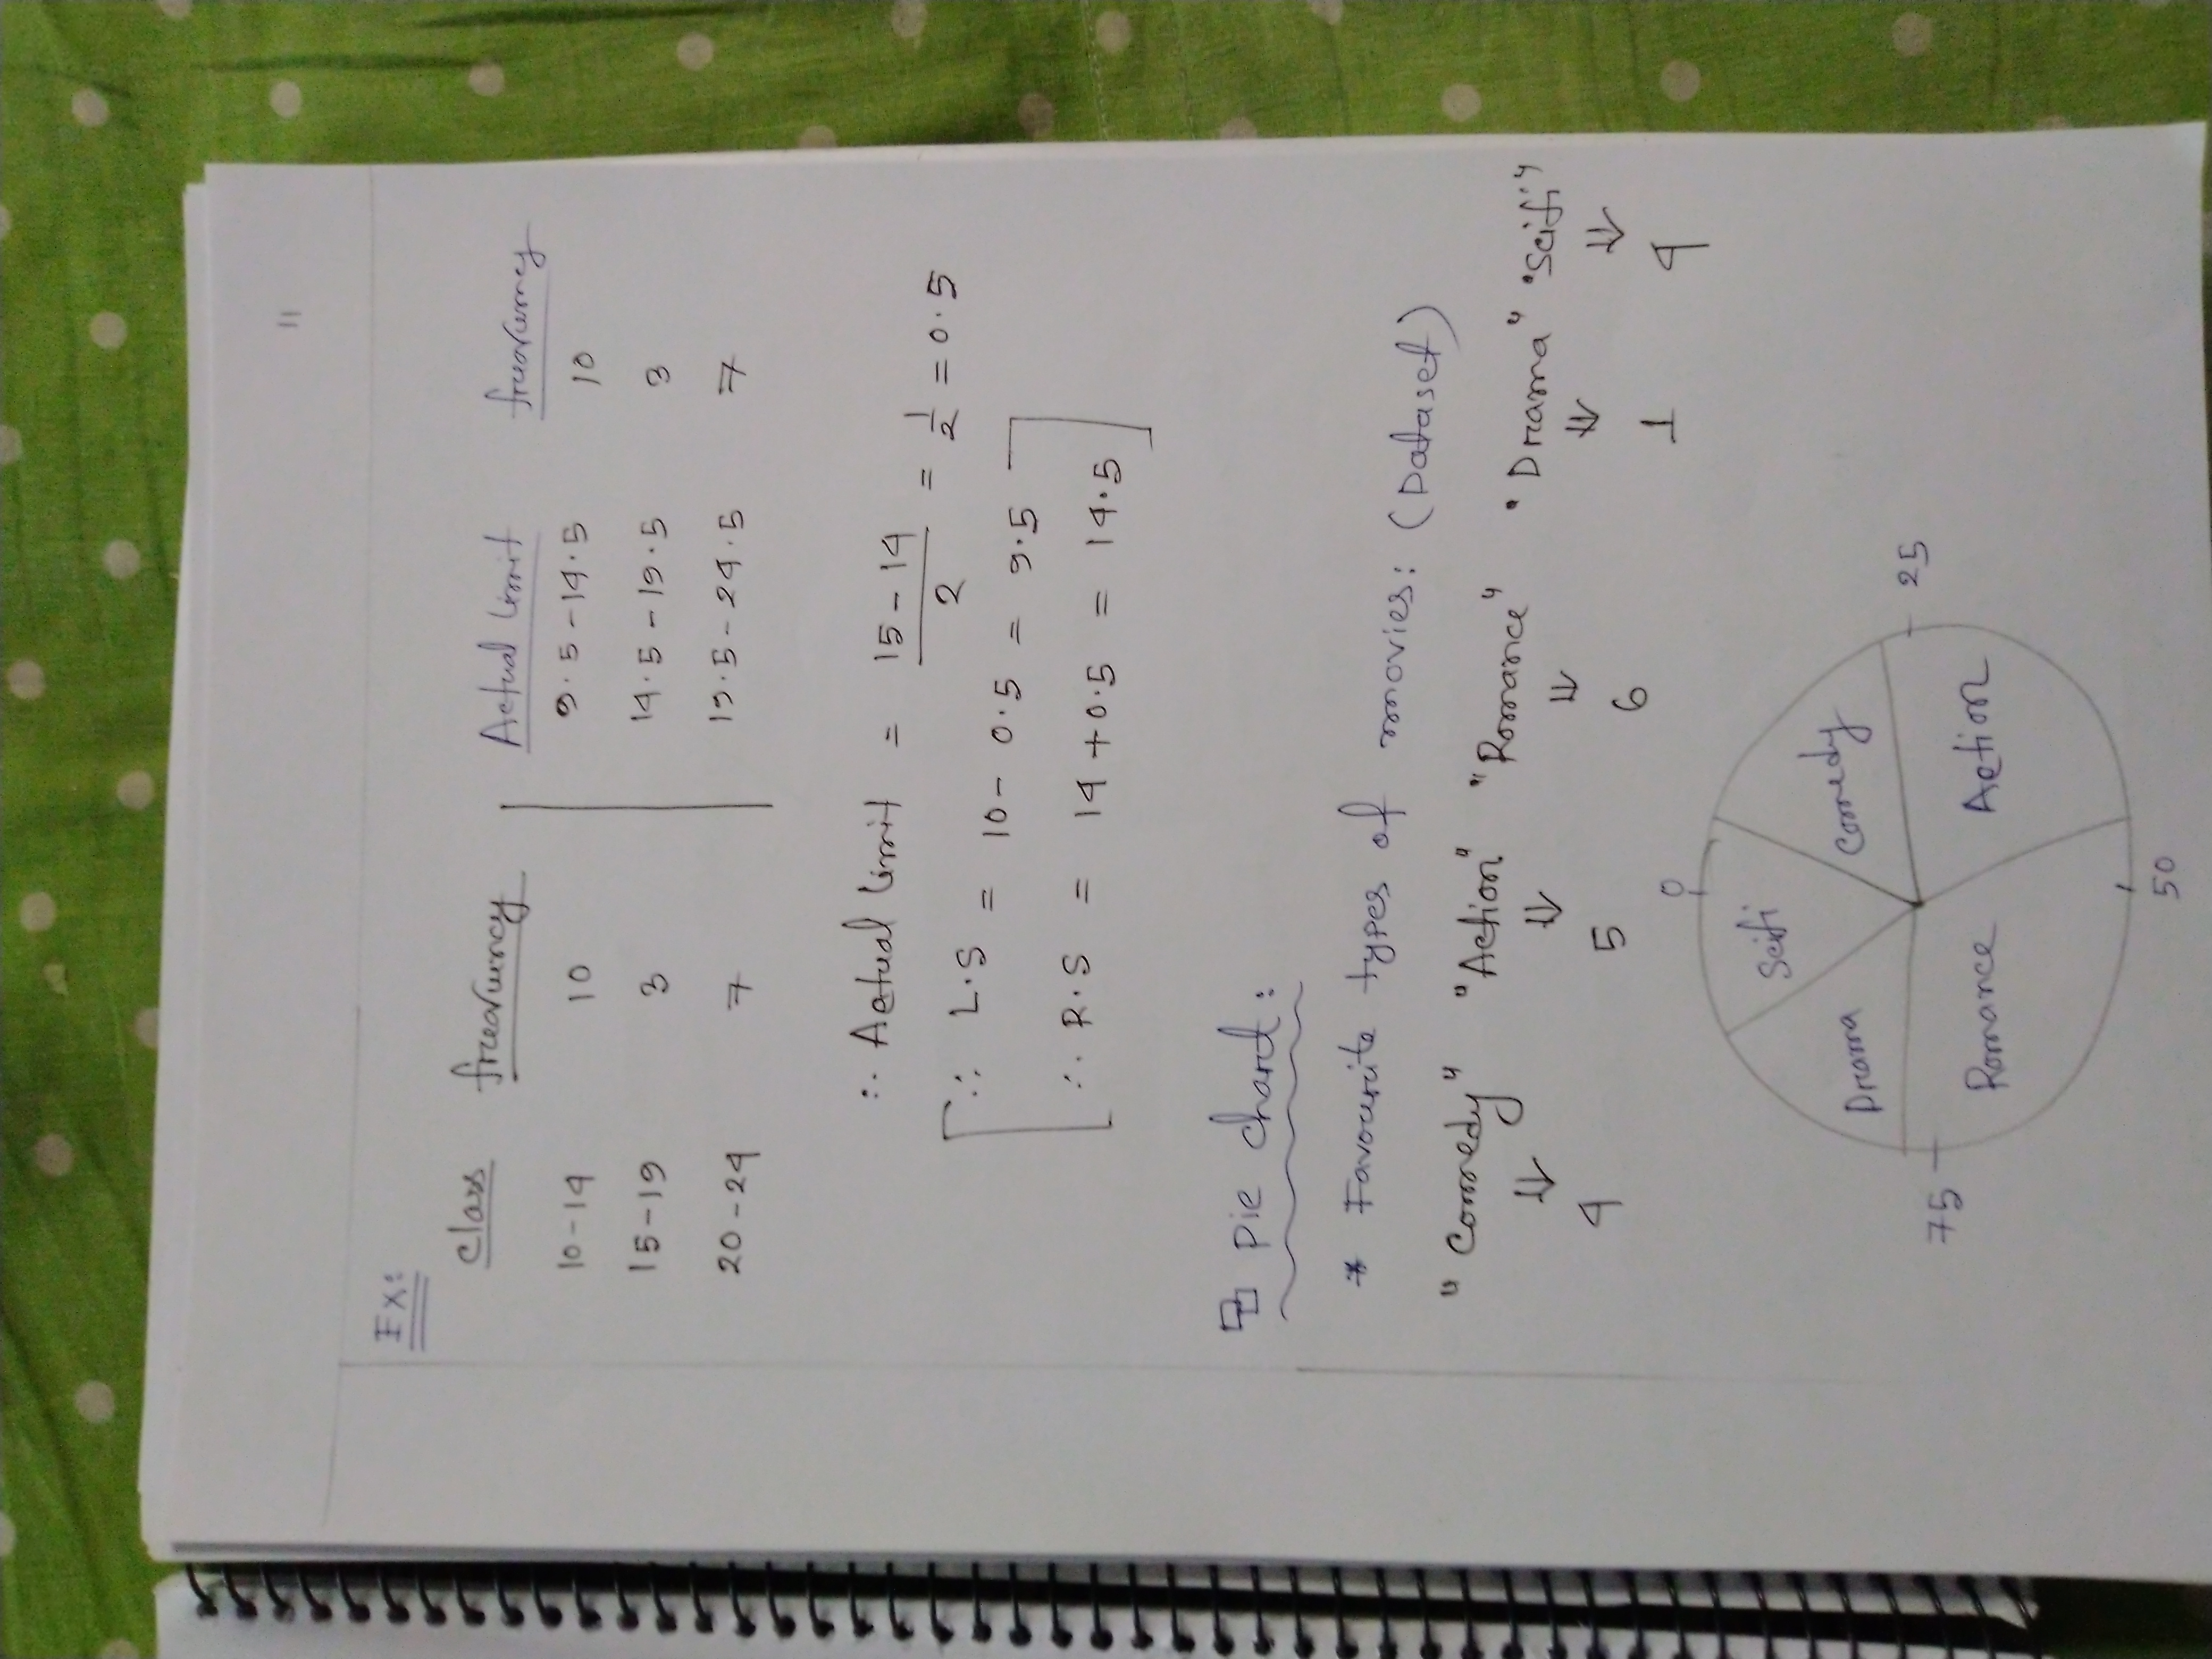 11
Ex:
Class frequency Actual limit frequency
10-14 10 9.5-14.5 10
15-19 3 14.5-19.5 3
20-24 7 19.5-24.5 7
∴ Actual limit = 15-14/2 = 1/2 = 0.5
∴ L.S = 10-0.5 = 9.5
∴ R.S = 14+0.5 = 14.5
Pie chart:
* Favourite types of movies: (Dataset)
"Comedy" "Action" "Romance" "Drama" "Scifi"
⇓ ⇓ ⇓ ⇓ ⇓
4 5 6 1 4
0
Scifi Comedy
Drama
75 25
Romance Action
50